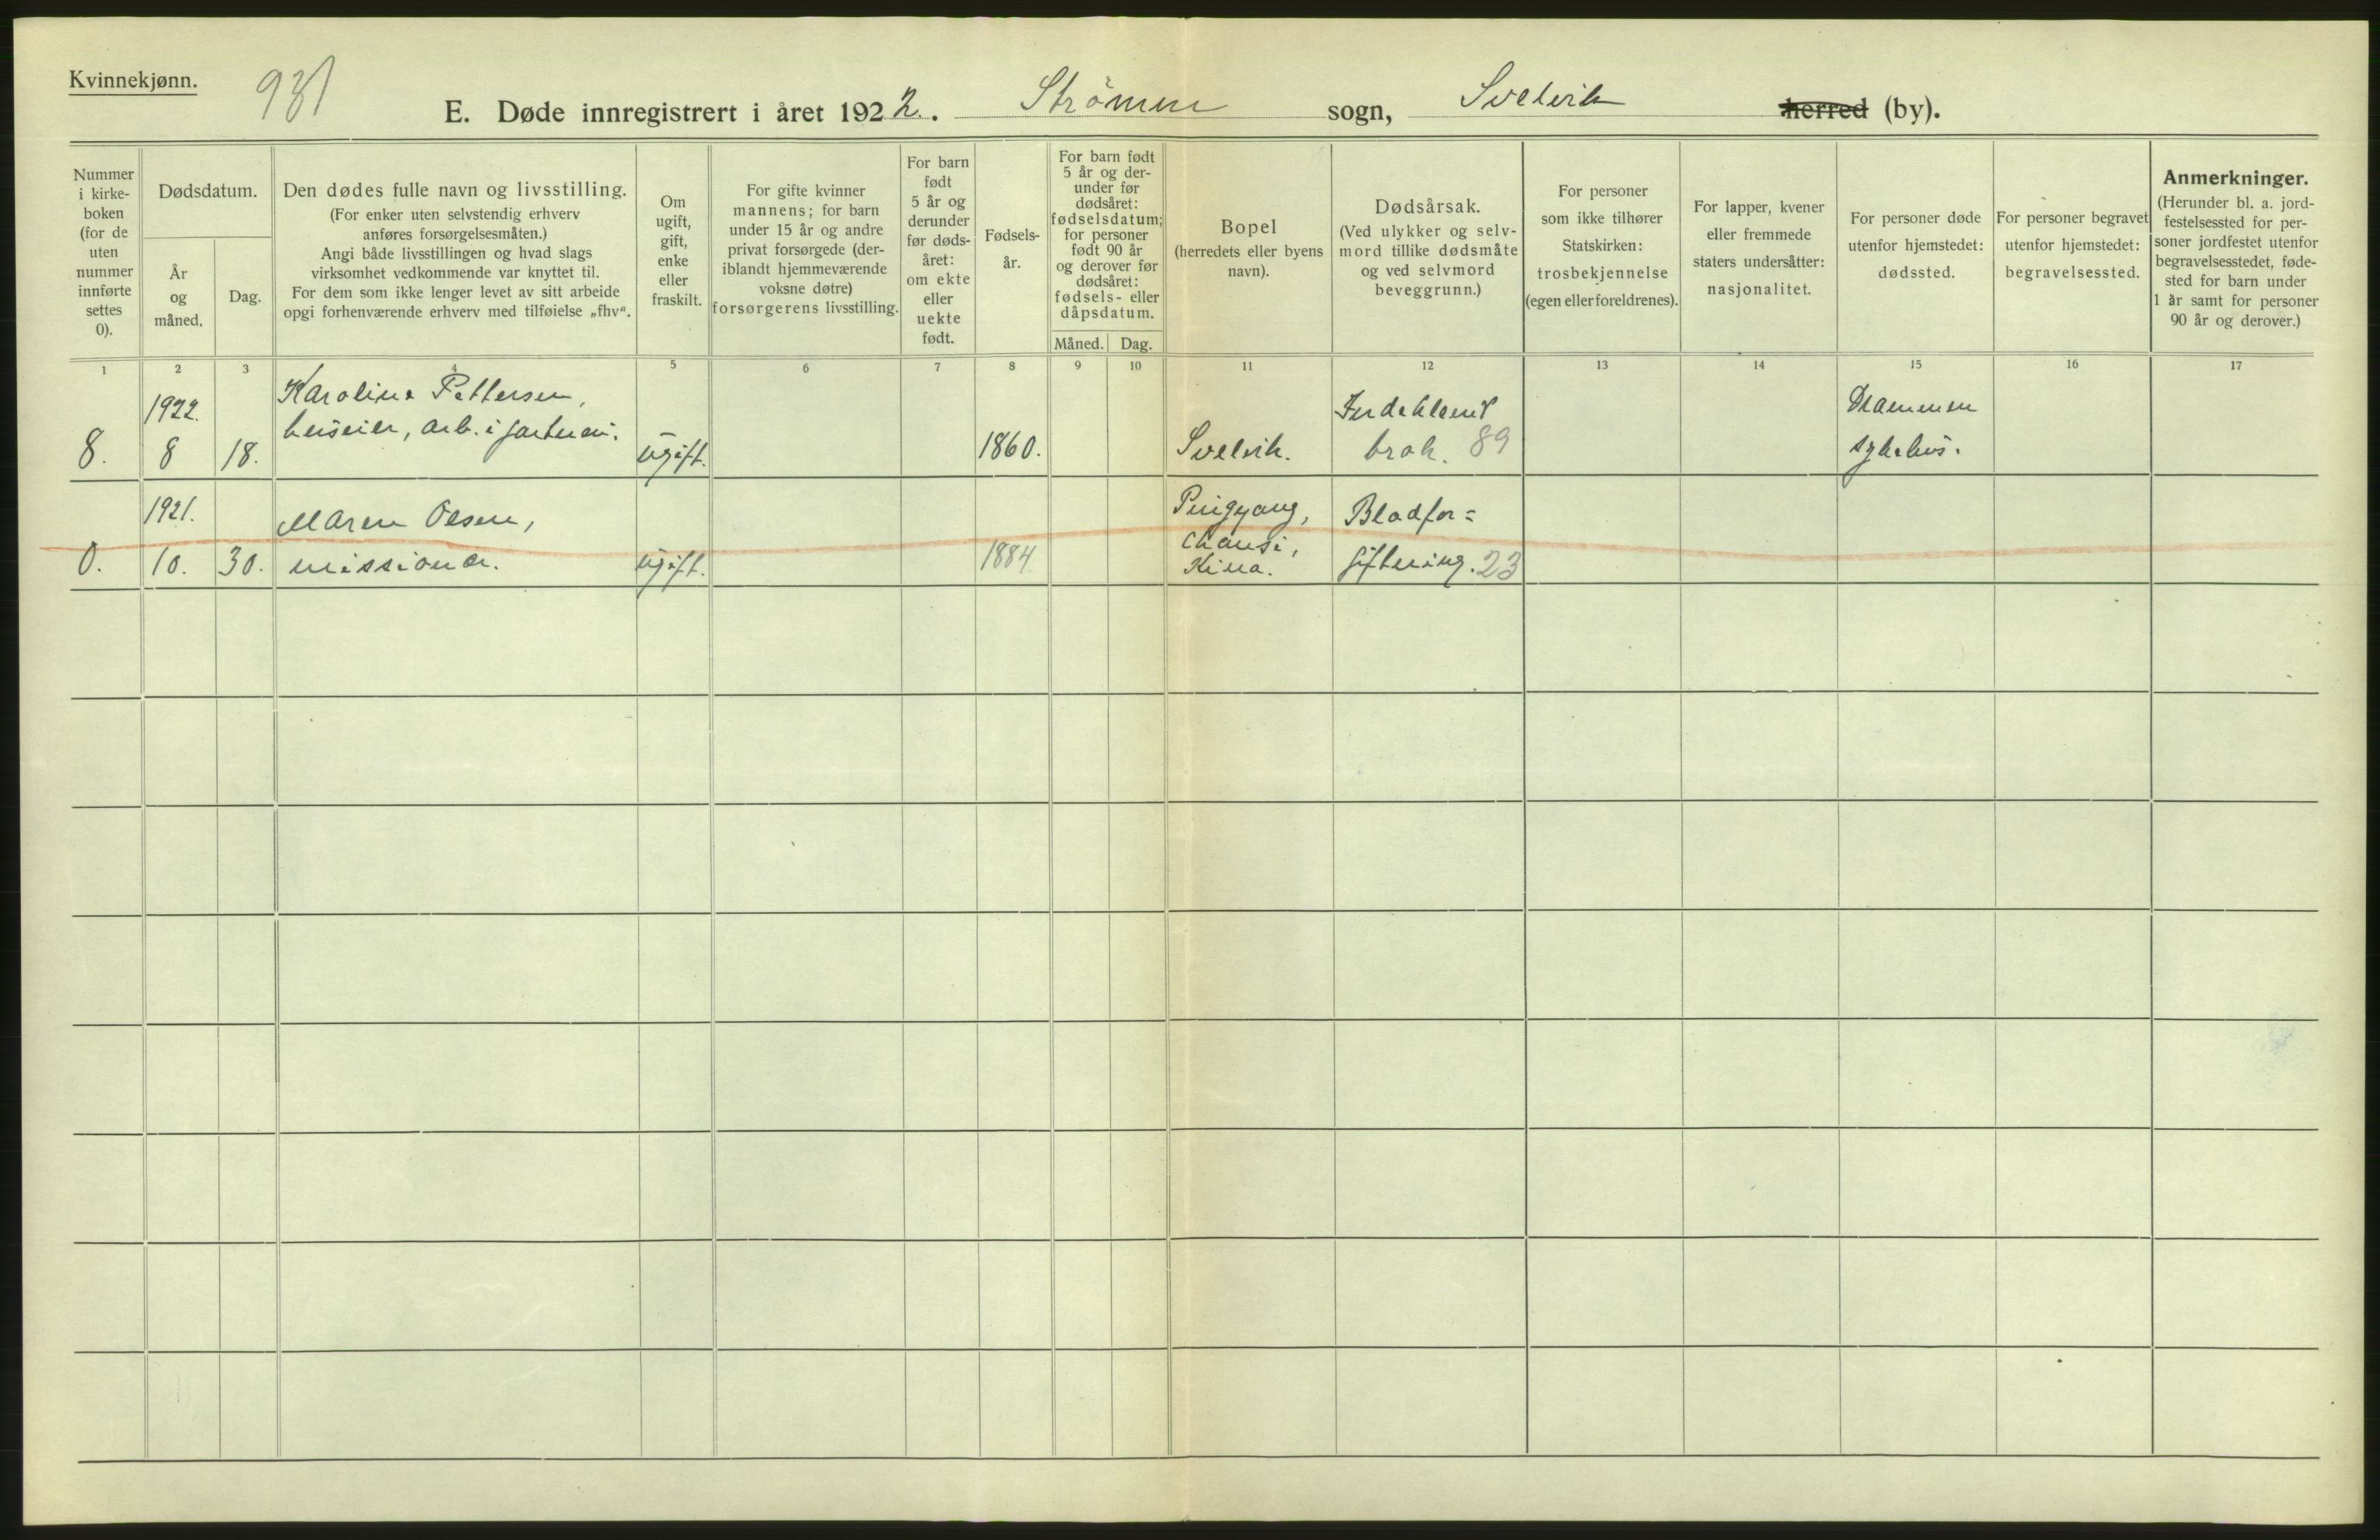 Kvinnekjønn.
931
E. Døde innregistrert i året 1922. Strømm sogn, Svelvik herred (by).
Nummer i kirke- boken (for de uten nummer innførte settes 0).
Dødsdatum.
År og måned.
Dag.
Den dødes fulle navn og livsstilling.
(For enker uten selvstendig erhverv anføres forsørgelsesmåten.)
Angi både livsstillingen og hvad slags virksomhet vedkommende var knyttet til.
For dem som ikke lenger levet av sitt arbeide opgi forhenværende erhverv med tilføielse „fhv“.
Om ugift, gift, enke eller fraskilt.
For gifte kvinner mannens; for barn under 15 år og andre privat forsørgede (der- iblandt hjemmeværende voksne døtre) forsørgerens livsstilling.
For barn født 5 år og derunder før døds- året: om ekte eller uekte født.
Fødsels- år.
For barn født 5 år og der- under før dødsåret: fødselsdatum; for personer født 90 år og derover før dødsåret: fødsels- eller dåpsdatum.
Måned. Dag.
Bopel (herredets eller byens navn).
Dødsårsak. (Ved ulykker og selv- mord tillike dødsmåte og ved selvmord beveggrunn.)
For personer som ikke tilhører Statskirken: trosbekjennelse (egen eller foreldrenes).
For lapper, kvener eller fremmede staters undersåtter: nasjonalitet.
For personer døde utenfor hjemstedet: dødssted.
For personer begravet utenfor hjemstedet: begravelsessted.
Anmerkninger. (Herunder bl. a. jord- festelsessted for per- soner jordfestet utenfor begravelsesstedet, føde- sted for barn under 1 år samt for personer 90 år og derover.)
1 2 3 4 5 6 7 8 9 10 11 12 13 14 15 16 17
8. 1922. 8 18. Karoline Pettersen, huseier, arb. i gartneri. ugift. 1860. Svelvik. Indeklemt brok. 89 Drammen sykehus.
0. 1921. 10. 30. Maren Olsen, missionær. ugift. 1884 Pingyang, Chansi, Kina. Blodfor= giftning. 23